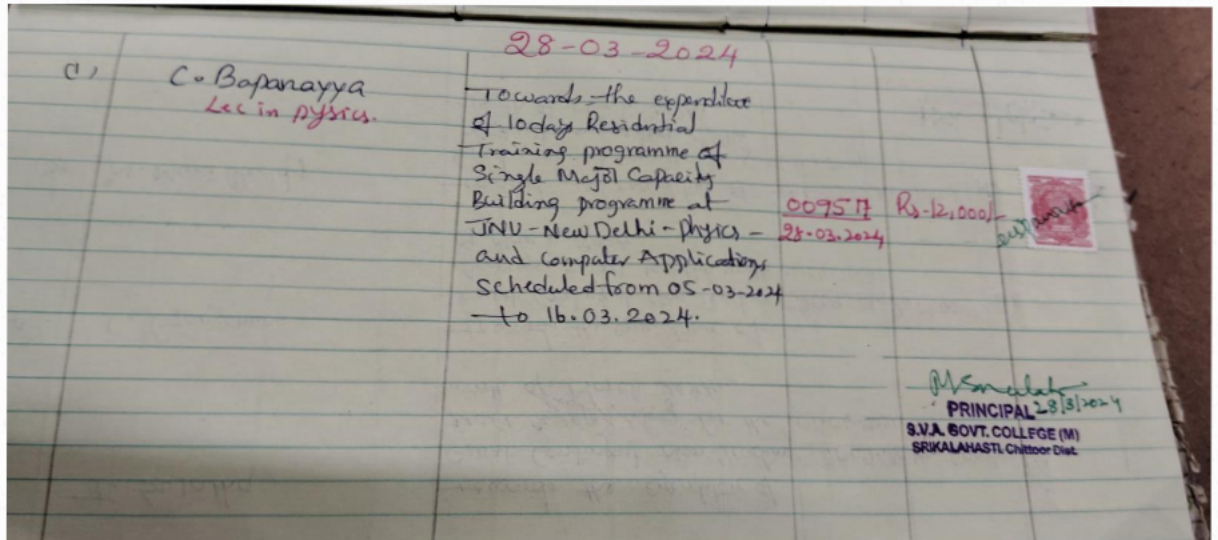 28-03-2024
C. Bapanayya
Lec in pysics.
Towards the expenditure
of 10days Residential
Training programme of
Single Major Capacity
Building programme at
JNU-New Delhi-Physics-
and Computer Applications
scheduled from 05-03-2024
to 16.03.2024.
28.03.2024
Rs-12,000/-
28/3/2024
PRINCIPAL
S.V.A. GOVT. COLLEGE (M)
SRIKALAHASTI, Chittoor Dist.